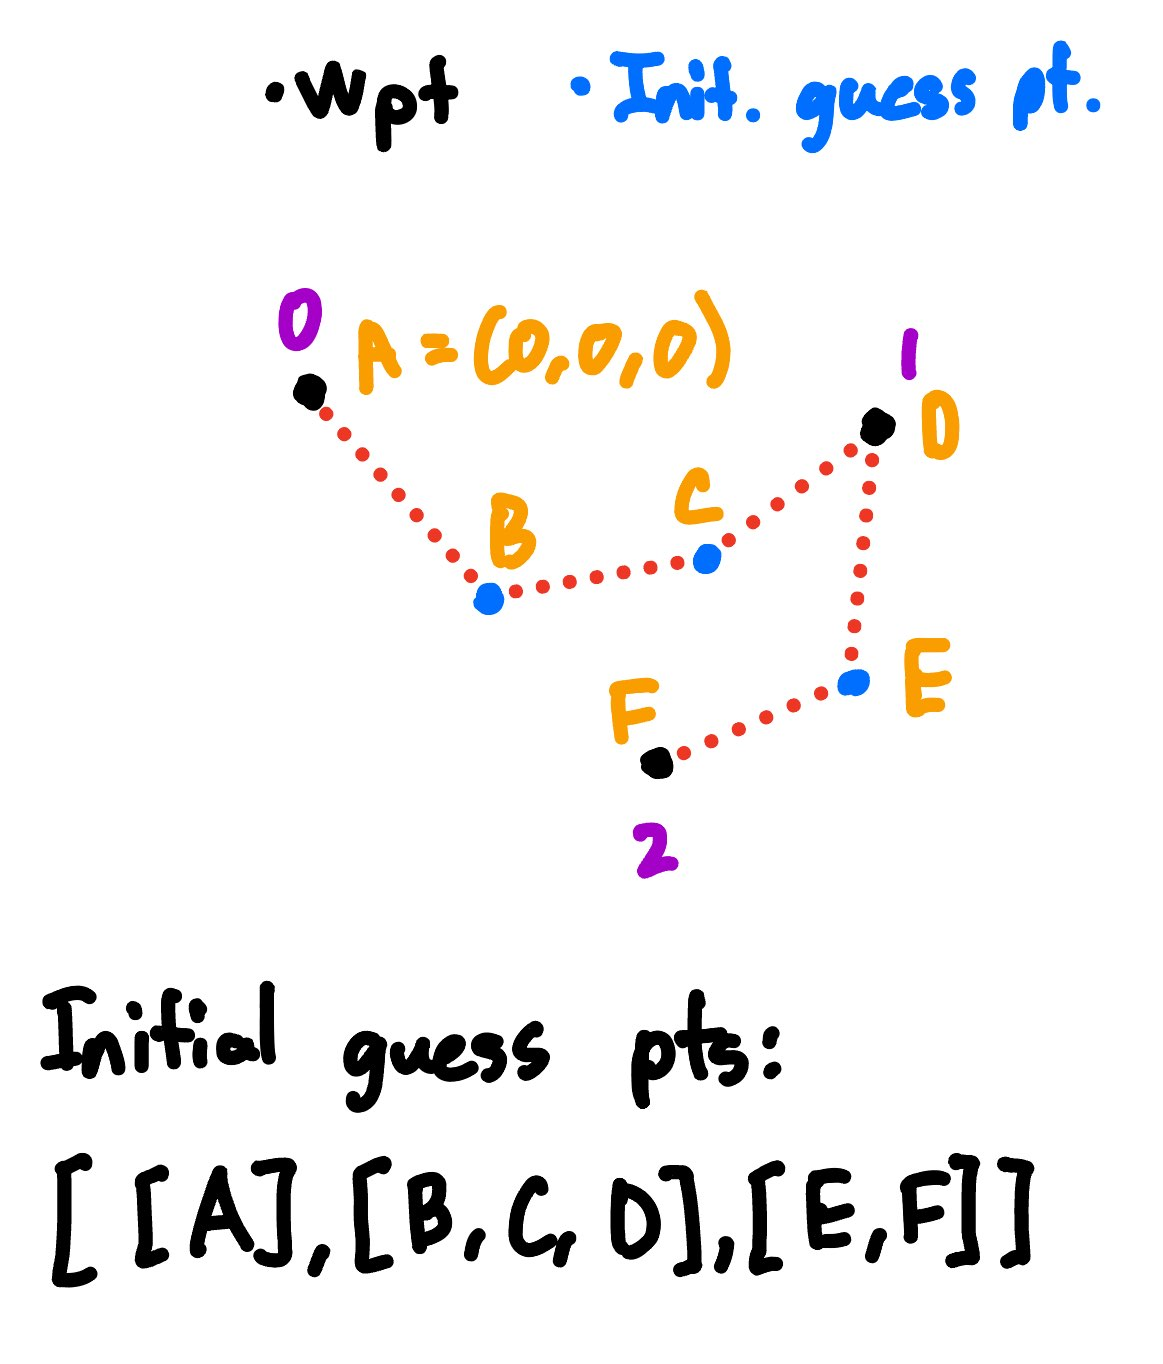 •Wpt •Init. guess pt.
0 A = (0,0,0) 1
D
C
B
E
F
2
Initial guess pts:
[[A],[B,C,D],[E,F]]